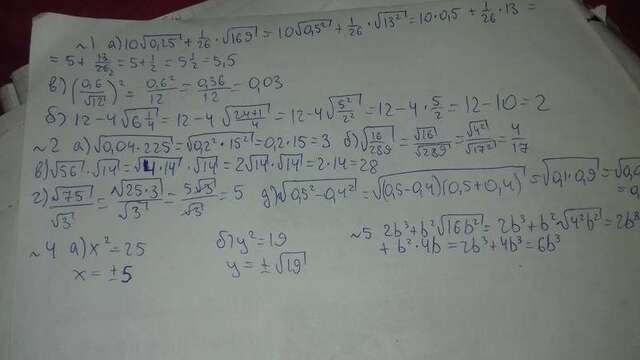 ~1 а) 10√0,25 + 1/26 · √169 = 10√0,5² + 1/26 · √13² = 10 · 0,5 + 1/26 · 13 =
= 5 + 13/26 = 5 + 1/2 = 5 1/2 = 5,5
в) (0,6/√12)² = 0,6²/12 = 0,36/12 = 0,03
б) 12 - 4√6 1/4 = 12 - 4√(24+1)/4 = 12 - 4√5²/2² = 12 - 4 · 5/2 = 12 - 10 = 2
~2 а) √0,04 · 225 = √0,2² · 15² = 0,2 · 15 = 3 б) √16/289 = √16/√289 = √4²/√17² = 4/17
в) √56 · √14 = √4·14 · √14 = 2√14 · √14 = 2 · 14 = 28
г) √75/√3 = √25·3/√3 = 5√3/√3 = 5 д) √0,5² - 0,4² = √(0,5 - 0,4)(0,5 + 0,4) = √0,1 · 0,9 = √0,0
~4 а) x² = 25 б) y² = 19
x = ±5 y = ±√19
~5 2b³ + b² √16b² = 2b³ + b² √4²b² = 2b³
+ b² · 4b = 2b³ + 4b³ = 6b³